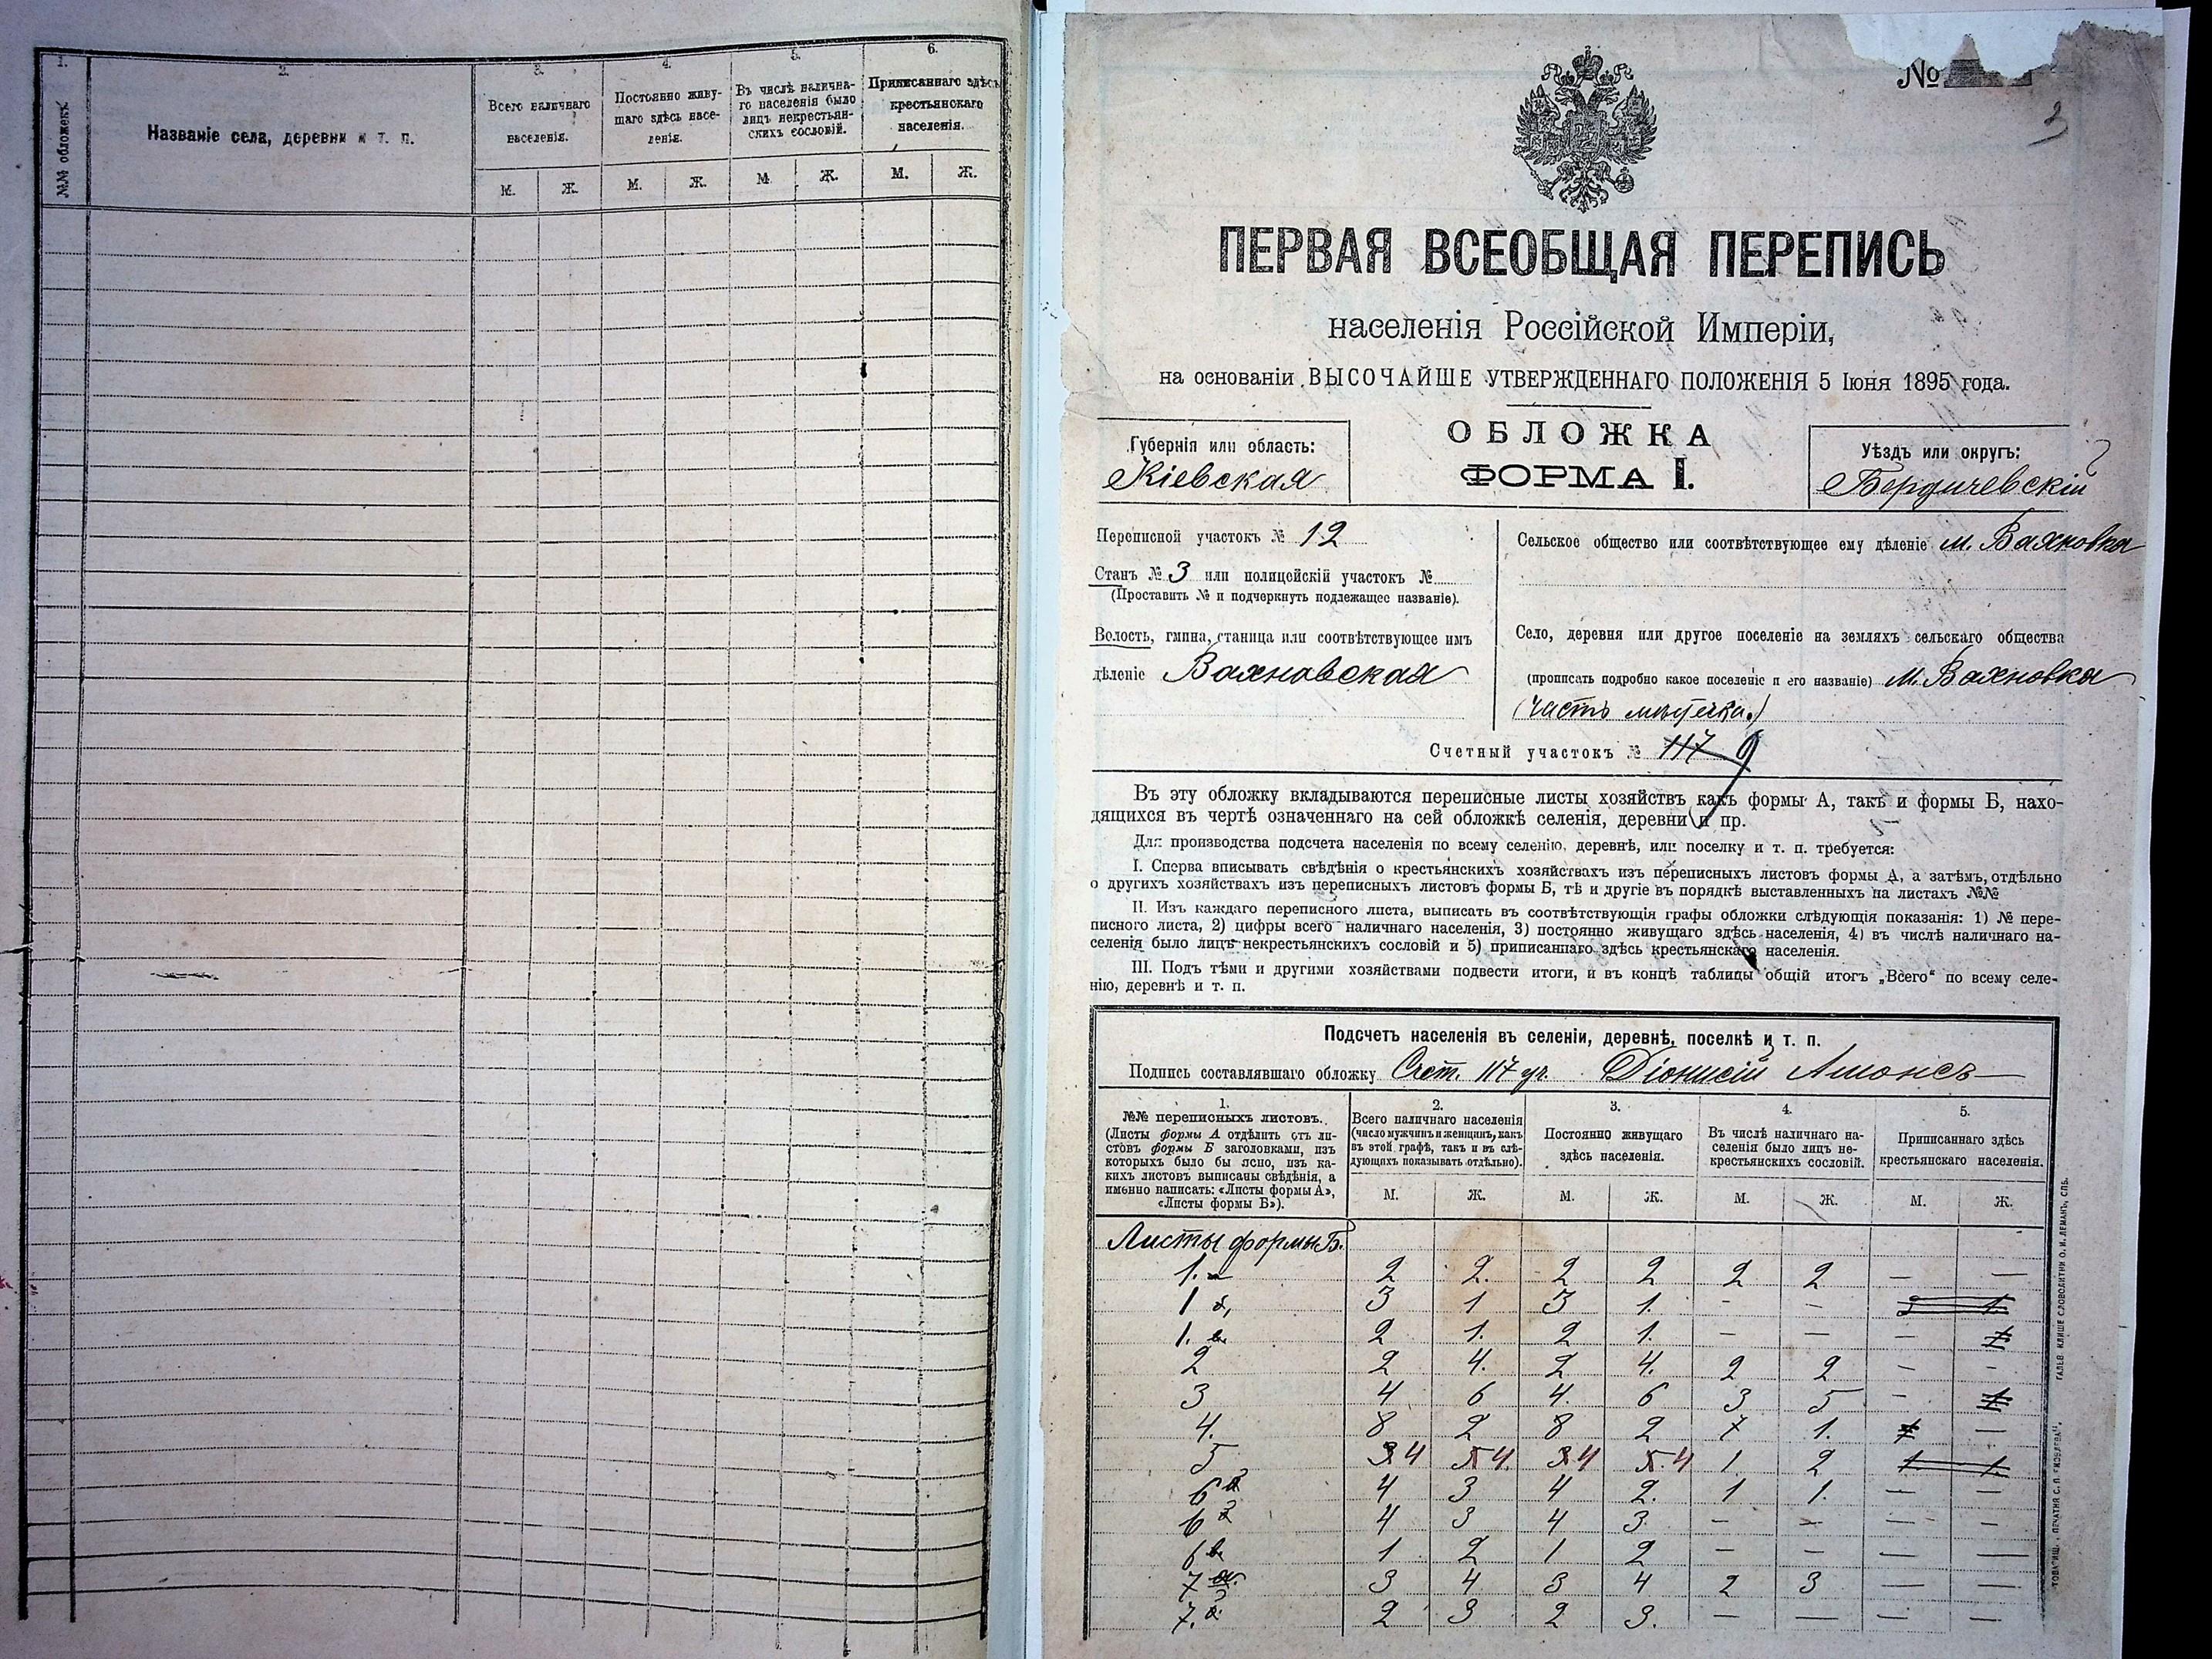 1.
2.
3.
4.
5.
6.
№№ обложекъ
Названіе села, деревни и т. п.
Всего наличнаго
населенія.
Постоянно живу-
щаго здѣсь насе-
ленія.
Въ числѣ налична-
го населенія было
лицъ некрестьян-
скихъ сословій.
Приписаннаго здѣсь
крестьянскаго
населенія.
М. Ж. М. Ж. М. Ж. М. Ж.
№
3
ПЕРВАЯ ВСЕОБЩАЯ ПЕРЕПИСЬ
населенія Россійской Имперіи,
на основаніи ВЫСОЧАЙШЕ УТВЕРЖДЕННАГО ПОЛОЖЕНІЯ 5 Іюня 1895 года.
ОБЛОЖКА
ФОРМА I.
Губернія или область:
Кіевская
Уѣздъ или округъ:
Бердичевскій
Переписной участокъ № 12
Станъ № 3 или полицейскій участокъ №
(Проставить № и подчеркнуть подлежащее названіе).
Волость, гмина, станица или соотвѣтствующее имъ
дѣленіе Вахновская
Сельское общество или соотвѣтствующее ему дѣленіе м. Вахновка
Село, деревня или другое поселеніе на земляхъ сельскаго общества
(прописать подробно какое поселеніе и его названіе) м. Вахновка
(часть мѣстечка.)
Счетный участокъ № 117 9
Въ эту обложку вкладываются переписные листы хозяйствъ какъ формы А, такъ и формы Б, нахо-
дящихся въ чертѣ означеннаго на сей обложкѣ селенія, деревни и пр.
Для производства подсчета населенія по всему селенію, деревнѣ, или поселку и т. п. требуется:
I. Сперва вписывать свѣдѣнія о крестьянскихъ хозяйствахъ изъ переписныхъ листовъ формы А, а затѣмъ, отдѣльно
о другихъ хозяйствахъ изъ переписныхъ листовъ формы Б, тѣ и другіе въ порядкѣ выставленныхъ на листахъ №№
II. Изъ каждаго переписного листа, выписать въ соотвѣтствующія графы обложки слѣдующія показанія: 1) № пере-
писного листа, 2) цифры всего наличнаго населенія, 3) постоянно живущаго здѣсь населенія, 4) въ числѣ наличнаго на-
селенія было лицъ некрестьянскихъ сословій и 5) приписаннаго здѣсь крестьянскаго населенія.
III. Подъ тѣми и другими хозяйствами подвести итоги, и въ концѣ таблицы общій итогъ „Всего“ по всему селе-
нію, деревнѣ и т. п.
Подсчетъ населенія въ селеніи, деревнѣ, поселкѣ и т. п.
Подпись составлявшаго обложку Счет. 117 уч. Діонисій
1.
№№ переписныхъ листовъ.
(Листы формы А отдѣлить отъ ли-
стовъ формы Б заголовками, изъ
которыхъ было бы ясно, изъ ка-
кихъ листовъ выписаны свѣдѣнія, а
именно написать: «Листы формы А»,
«Листы формы Б»).
2.
Всего наличнаго населенія
(число мужчинъ и женщинъ, какъ
въ этой графѣ, такъ и въ слѣ-
дующихъ показывать отдѣльно).
3.
Постоянно живущаго
здѣсь населенія.
4.
Въ числѣ наличнаго на-
селенія было лицъ не-
крестьянскихъ сословій.
5.
Приписаннаго здѣсь
крестьянскаго населенія.
М. Ж. М. Ж. М. Ж. М. Ж.
Листы формы Б.
1. а 2 2. 2 2 2 2 — —
1 б, 3 1 3 1. - - 3 1.
1. в. 2 1. 2 1. — — — 1
2 2 4. 2 4. 2 2 — -
3 4 6 4. 6 3 5 - 1
4. 8 2 8 2 7 1. 1 —
5 3 4 5 4. 3 4 5 4 1 2 1. 1.
6 а 4 3 4 2. 1 1. — —
6 б 4 3 4 3. — — — —
6 в 1 2 1 2 — — — —
7 а. 3 4 3 4 2 3 — —
7. б. 2 3 2 3. — — — —